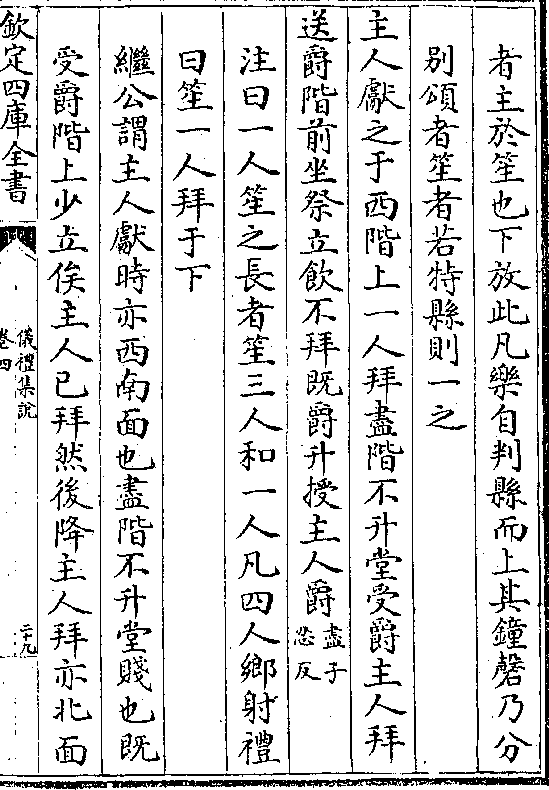 者主於笙也下放此凡樂自判縣而上其鐘磬乃分
別頌者笙者若特縣則一之
主人獻之于西階上一人拜盡階不升堂受爵主人拜
送爵階前坐祭立飲不拜既爵升授主人爵盡子
忍反
注曰一人笙之長者笙三人和一人凡四人鄉射禮
曰笙一人拜于下
繼公謂主人獻時亦西南面也盡階不升堂賤也既
受爵階上少立俟主人已拜然後降主人拜亦北面
欽定四庫全書
儀禮集說
卷四
二十九